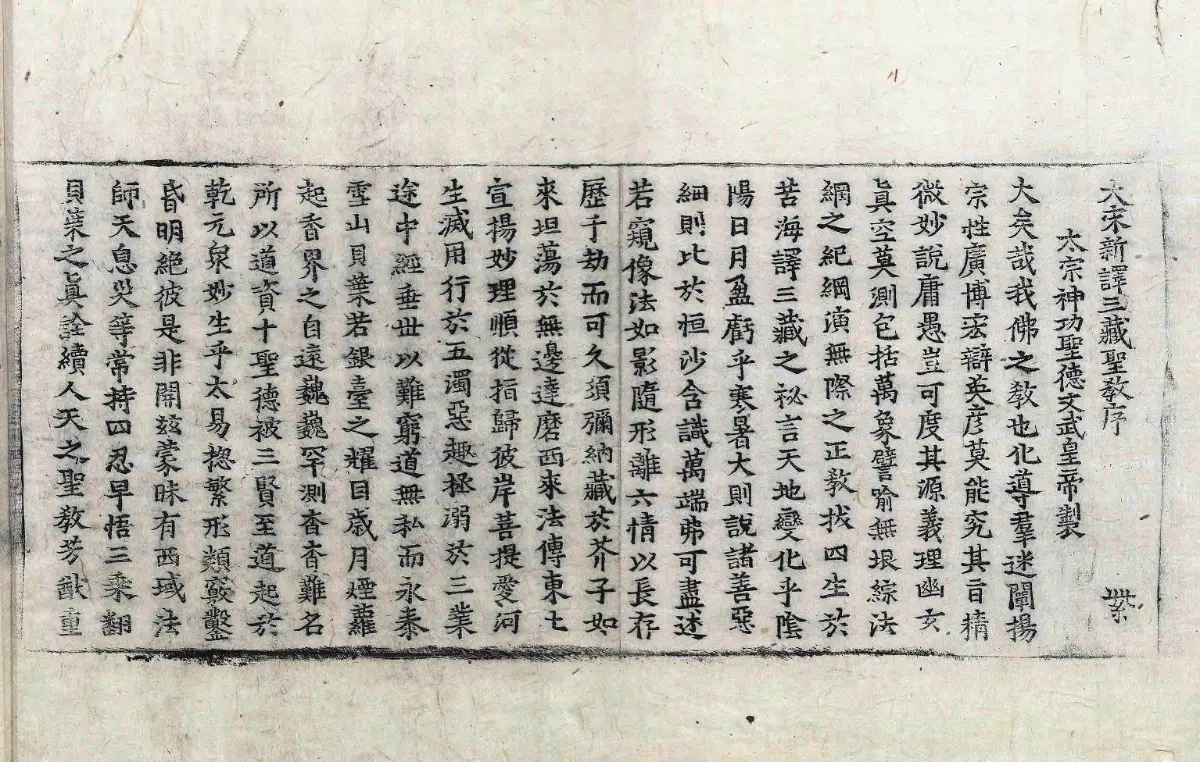 大宋新譯三藏聖敎序
太宗神功聖德文武皇帝製
大矣哉我佛之敎也化導羣迷闡揚
宗性廣博宏辯英彥莫能究其旨精
微妙說庸愚豈可度其源義理幽玄
眞空莫測包括萬象譬喻無垠綜法
網之紀綱演無際之正敎拔四生於
苦海譯三藏之祕言天地變化乎陰
陽日月盈虧乎寒暑大則說諸善惡
細則比於恒沙含識萬端弗可盡述
若窺像法如影隨形離六情以長存
歷千劫而可久須彌納藏於芥子如
來坦蕩於無邊達磨西來法傳東土
宣揚妙理順從指歸彼岸菩提愛河
生滅用行於五濁惡趣拯溺於三業
途中經垂世以難窮道無私而永泰
雪山貝葉若銀臺之耀目歲月煙蘿
起香界之自遠巍巍罕測杳杳難名
所以道資十聖德被三賢至道起於
乾元衆妙生乎太易揔繁形類竅鑿
昏明絕彼是非開茲蒙昧有西域法
師天息灾等常持四忍早悟三乘翻
貝葉之眞詮續人天之聖敎芳猷重